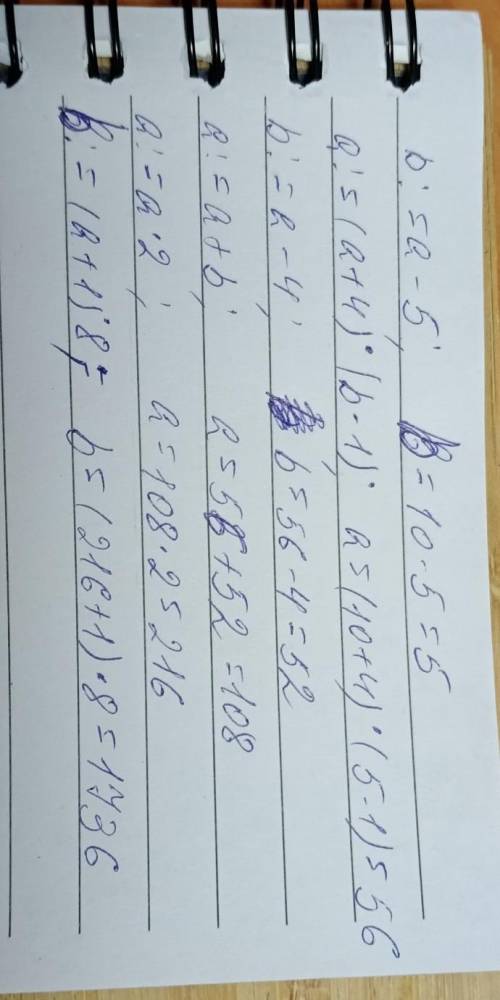 b:=a-5; b=10-5=5
a:=(a+4)·(b-1); a=(10+4)·(5-1)=56
b:=a-4; b=56-4=52
a:=a+b; a=56+52=108
a:=a·2; a=108·2=216
b:=(a+1)·8; b=(216+1)·8=1736